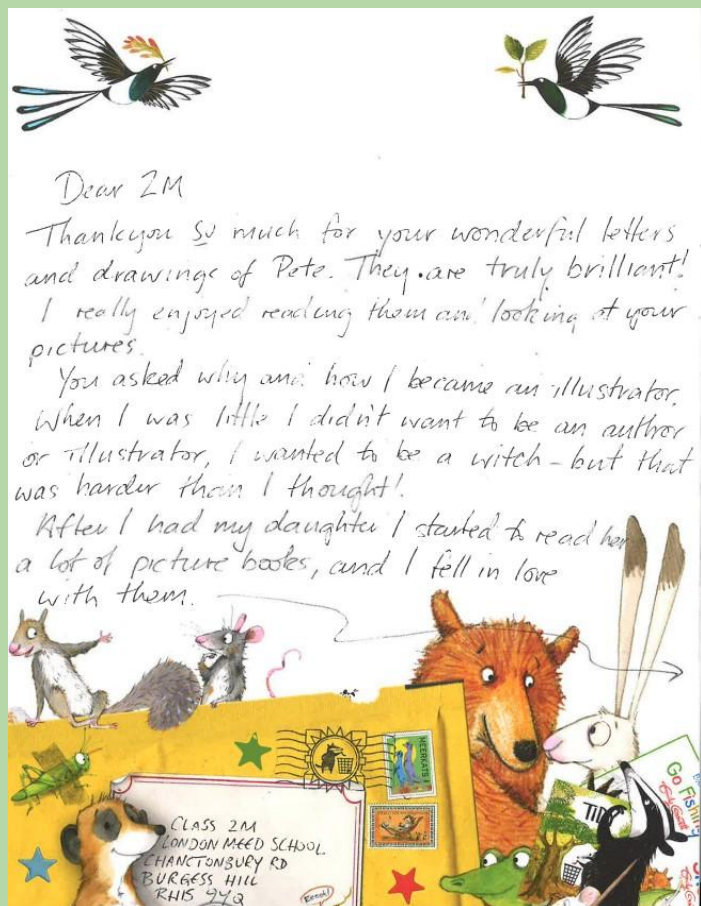 Dear 2M
Thankyou so much for your wonderful letters
and drawings of Pete. They are truly brilliant!
I really enjoyed reading them and looking at your
pictures.
You asked why and how I became an illustrator.
When I was little I didn't want to be an author
or illustrator, I wanted to be a witch - but that
was harder than I thought!
After I had my daughter I started to read her
a lot of picture books, and I fell in love
with them.
MEERKATS
CLASS 2M
LONDON MEED SCHOOL
CHANCTONBURY RD
BURGESS HILL
RH15
TIDY
Go Fishing